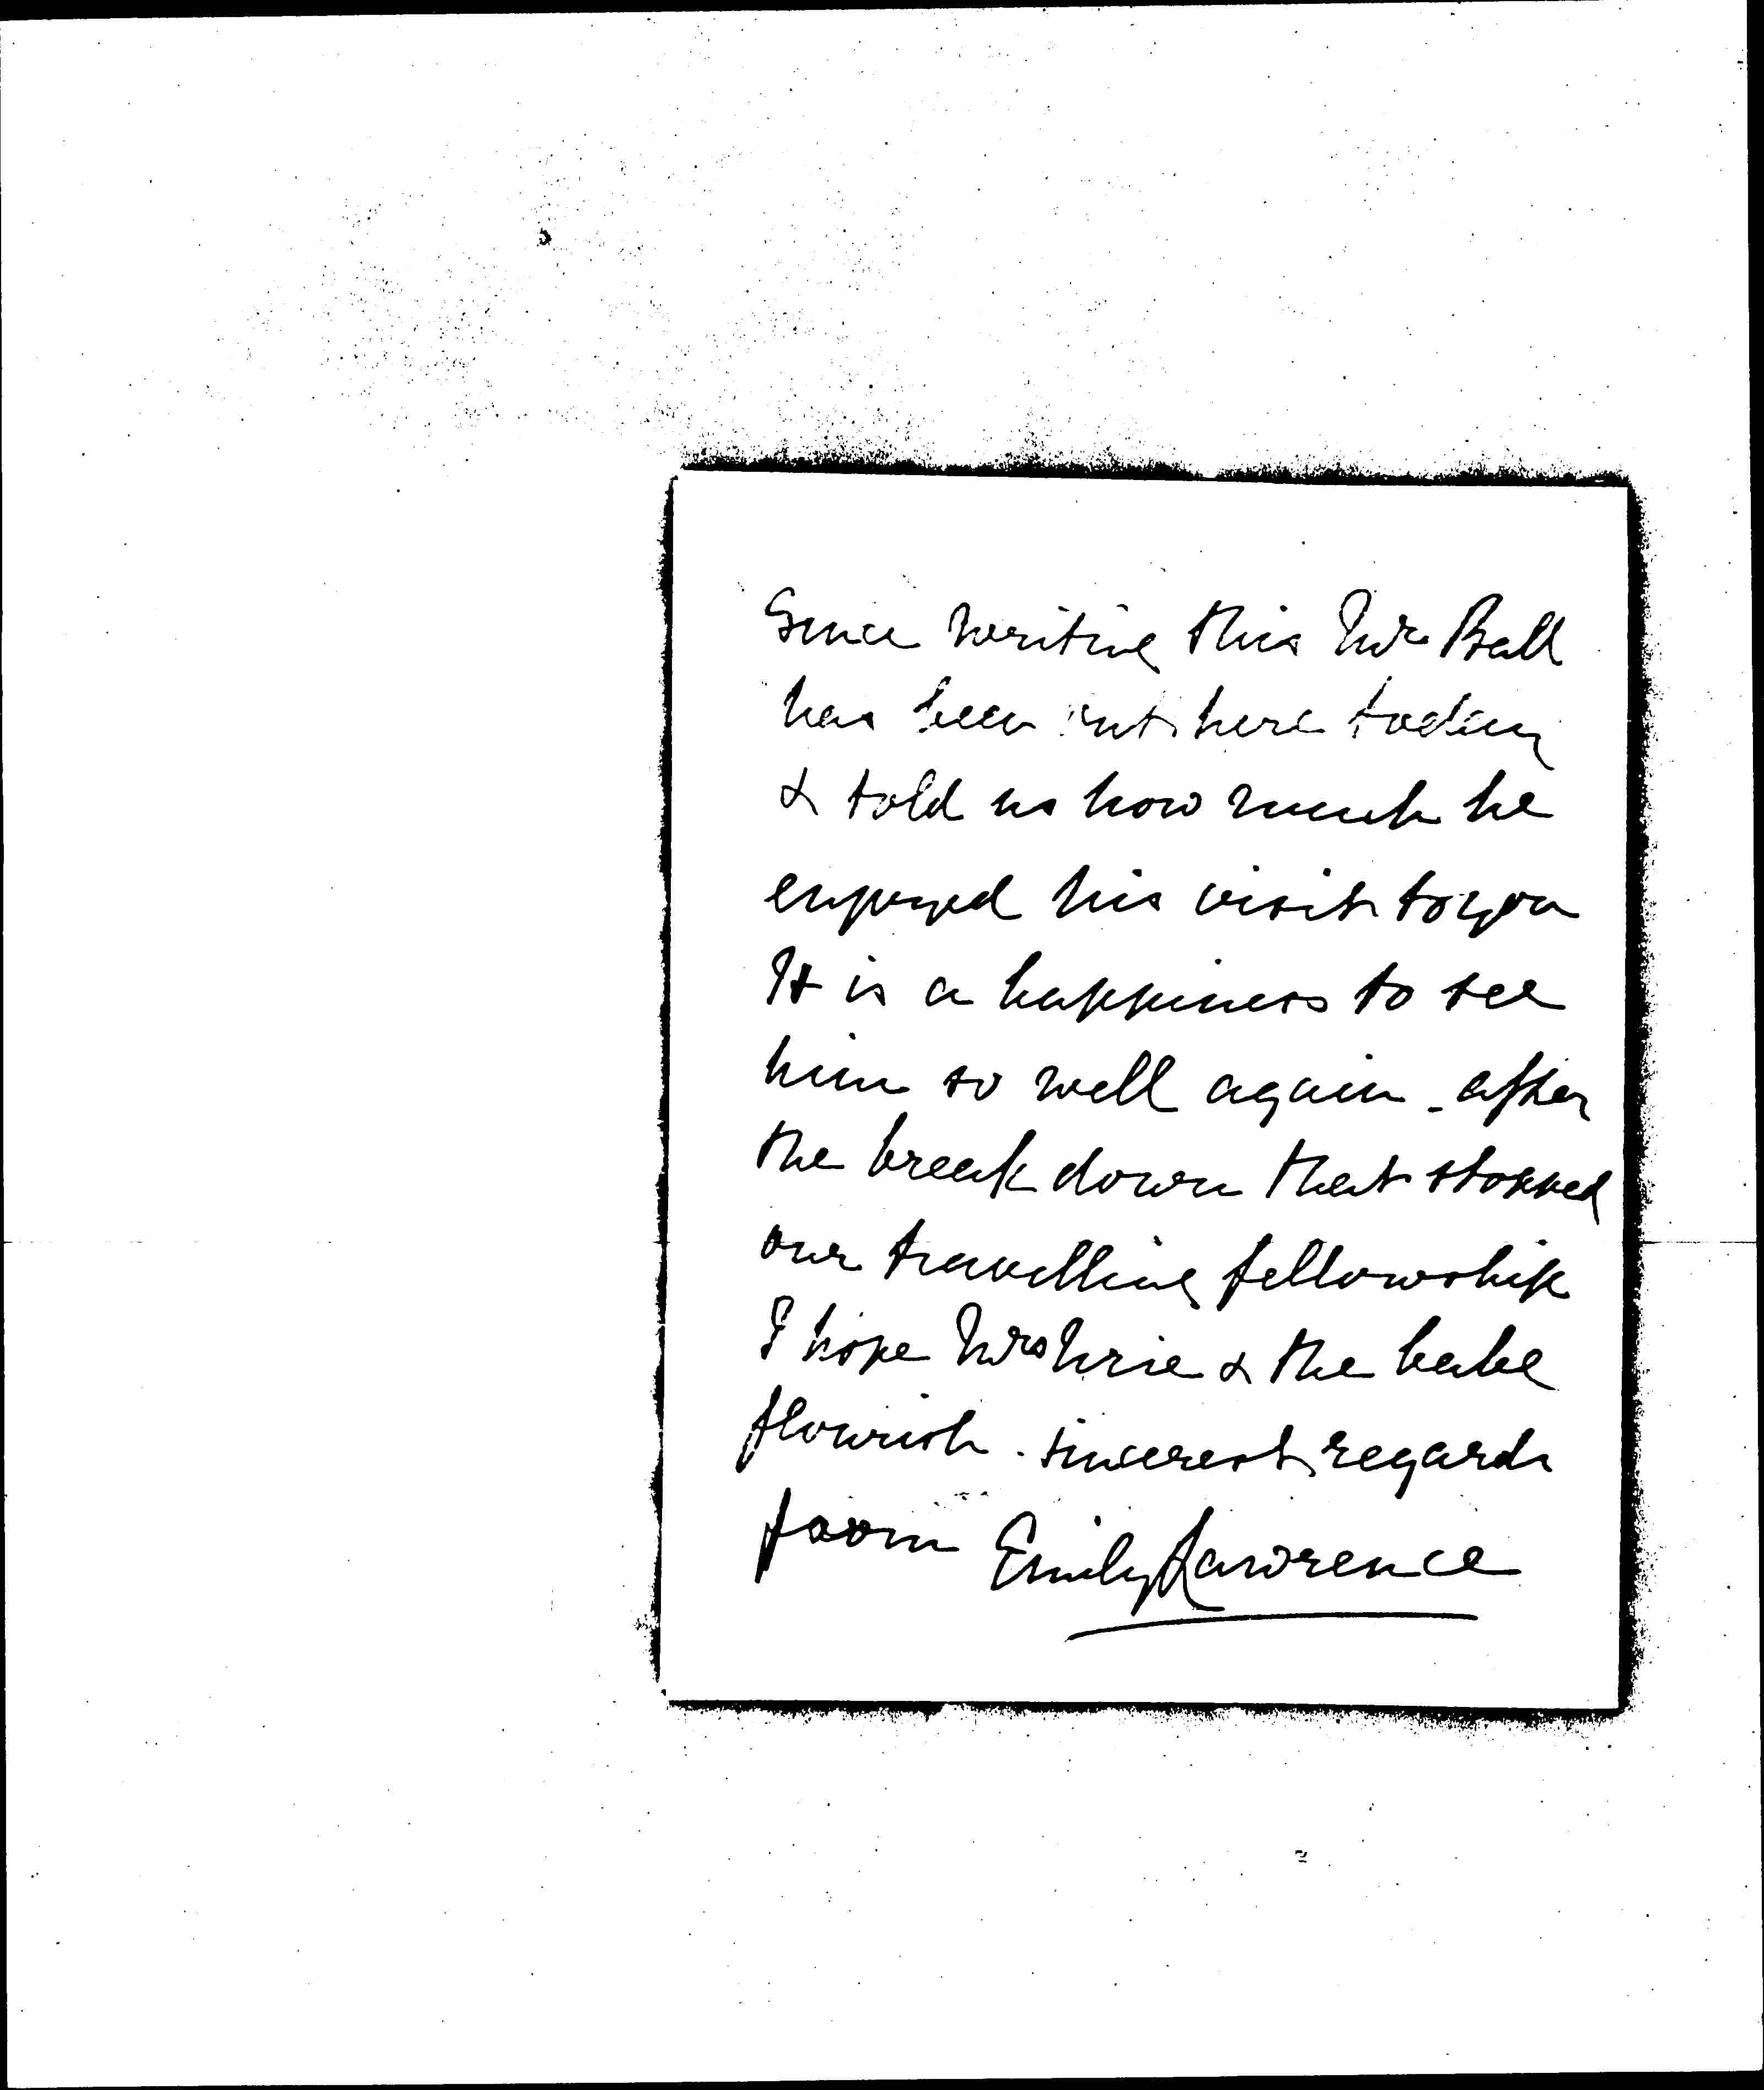 Since writing this Mr Ball
has been out here today
& told us how much he
enjoyed his visit to you
It is a happiness to see
him so well again - after
the break down that stopped
our travelling fellowship
I hope Mrs & the babe
flourish - sincerest regards
from Emily Lawrence